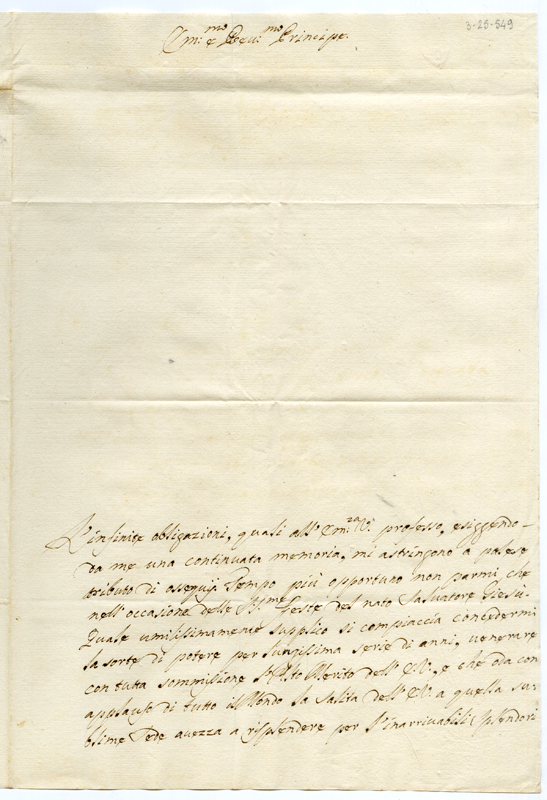 3-25-549
Em:mo e Rev:mo Principe.
L'infinite obligazioni, quali all'Em:za V: professo, esiggendo-
da me una continuata memoria, mi astringono a palese
tributo di ossequij. Tempo più opportuno non parmi, che
nell'occasione delle SS:me Feste del nato Salvatore Giesù.
Quale umilissimamente supplico si compiaccia concedermi
la sorte di potere per lunghissima serie di anni, venerare
con tutta sommissione l'Alto Merito dell'E.V., e che oda con
applauso di tutto il Mondo la salita dell'E.V. a quella su-
blime Sede avezza a risplendere per l'inarrivabili splendori